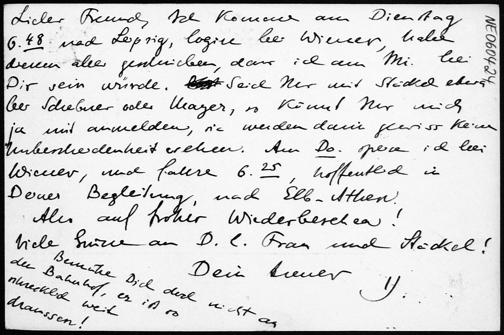 Lieber Freund, Ich komme am Dienstag
6.48 nach Leipzig, logire bei Wiener, habe
denen aber geschrieben, dass ich am Mi. bei
Dir sein würde. Seid Ihr mit Stäckel etwa
bei Scheibner oder Mayer, so könnt Ihr mich
ja mit anmelden, sie werden darin gewiss kein
Unbescheidenheit sehen. Am Do. speise ich bei
Wiener, und fahre 6.25, hoffentlich in
Deiner Begleitung, nach Elb-Athen.
Also auf frohes Wiedersehen!
Viele Grüsse an D. l. Frau und Stäckel!
Dein treuer
Bemühe Dich doch nicht an
den Bahnhof, er ist so
schrecklich weit
draussen!
NE0604-24